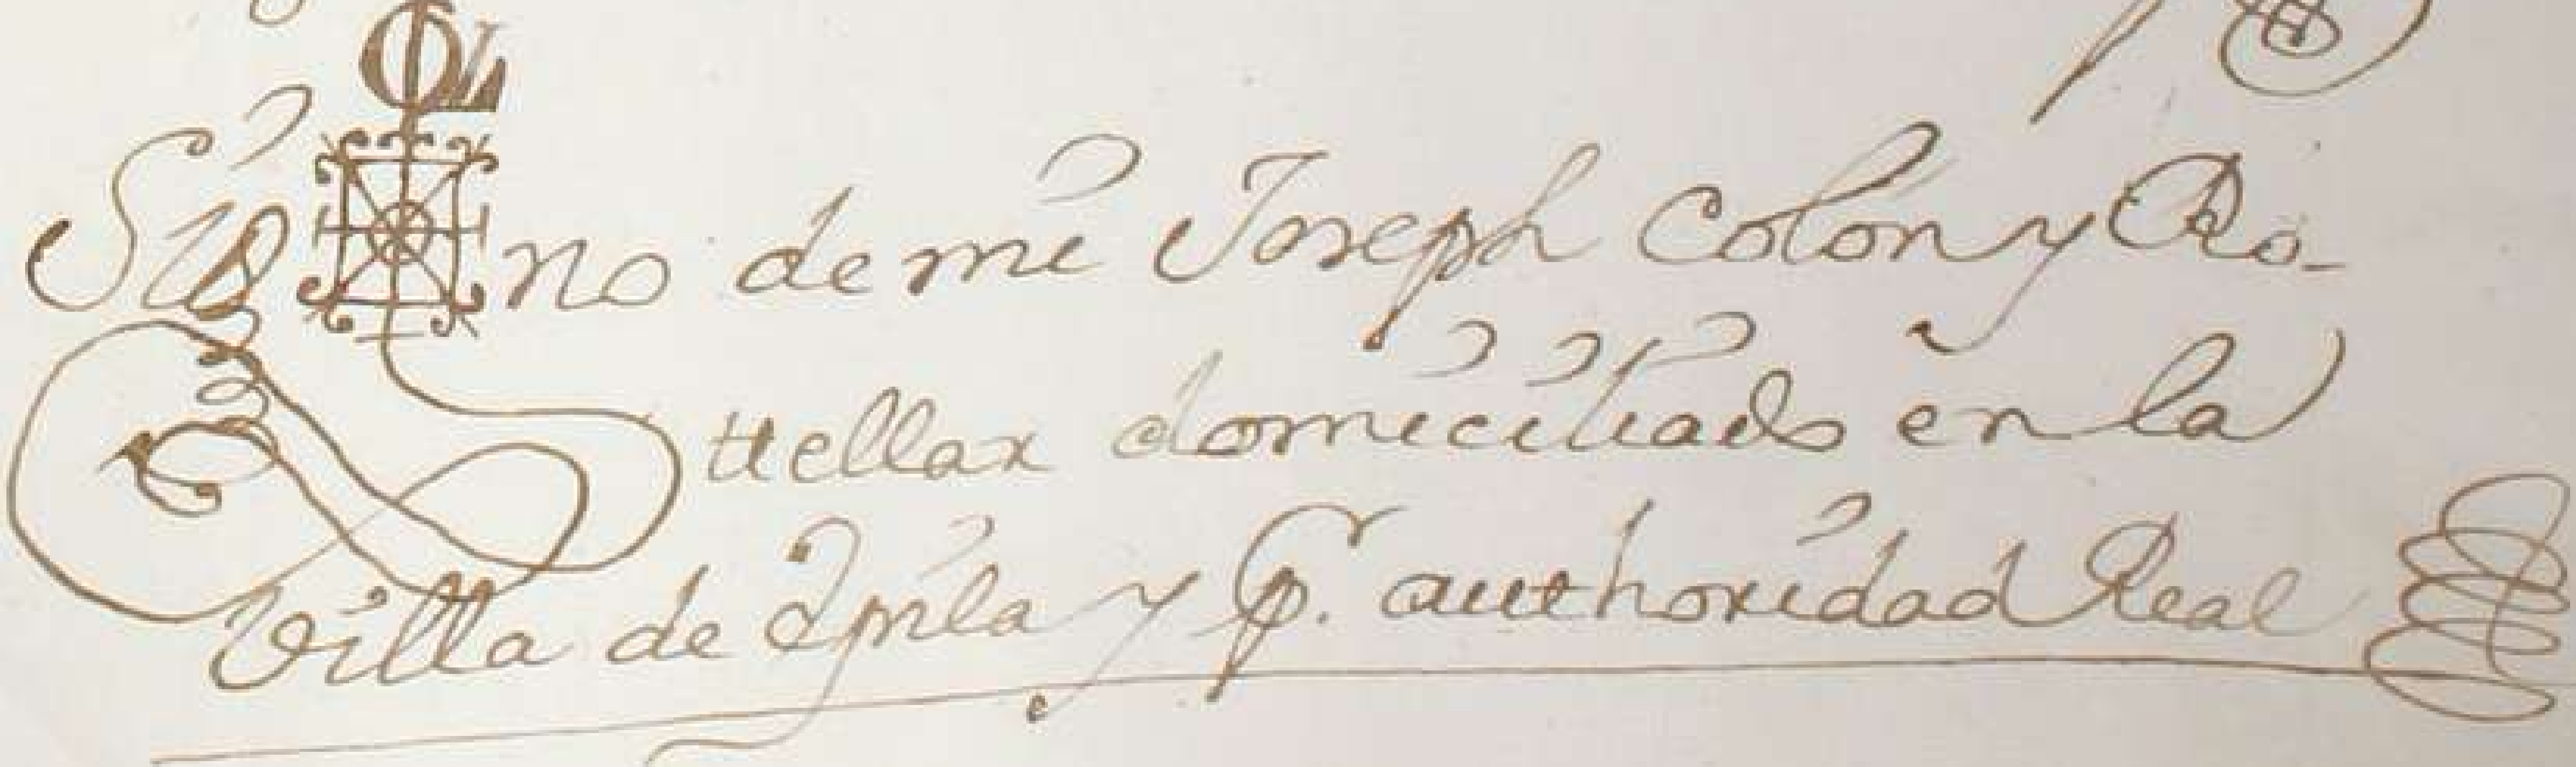 ΦL
Sig no de mi Joseph Colon y Ro-
ttellar domiciliado en la
Villa de y p. authoridad Real